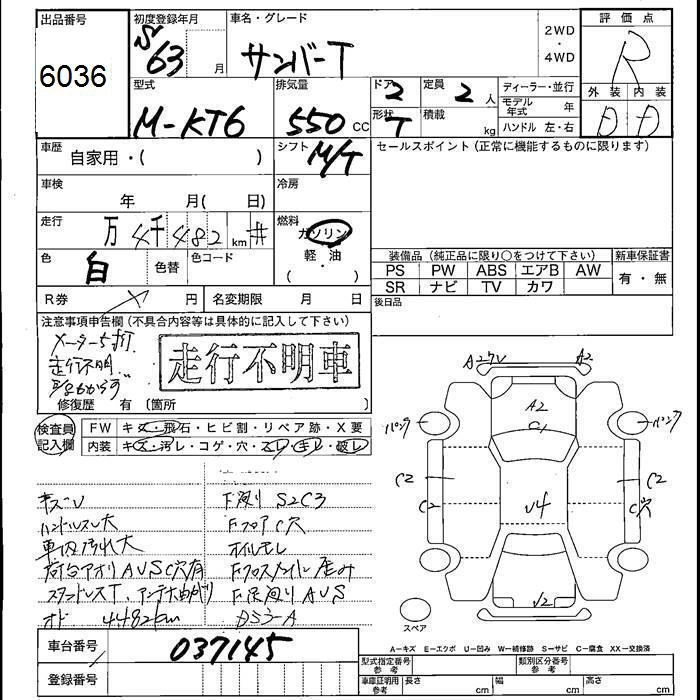 出品番号
6036
初度登録年月
S63 月
車名・グレード
サンバーT
2WD
・
4WD
評価点
R
外装 内装
D D
型式
M-KT6
排気量
550 CC
ドア
2
形状
T
定員
2 人
積載
kg
ディーラー・並行
モデル年式 年
ハンドル 左・右
車歴
自家用・( )
シフト
M/T
セールスポイント (正常に機能するものに限ります)
車検
年 月( 日)
冷房
走行
万4千482 km #
燃料
ガソリン
・
軽油
( )
色
白
色替
色コード
装備品 (純正品に限り○をつけて下さい)
新車保証書
PS PW ABS エアB AW
SR ナビ TV カワ
有・無
R券 円
名変期限 月 日
後日品
注意事項申告欄 (不具合内容等は具体的に記入して下さい)
メーター5桁
走行不明
走行不明車
修復歴 有 (箇所 )
検査員記入欄
FW キズ・飛石・ヒビ割・リペア跡・X要
内装 キズ・汚レ・コゲ・穴・スレ・キレ・破レ
キズU
ハンドルスレ大
車内汚れ大
荷台アオリAUSC穴有
スタッドレスT、アンテナ曲り
オド 4482km
F廻り S2C3
FフロアC穴
オイルモレ
F下廻り AUS
A2
A2
C1
パンク
パンク
C2
C2
C2
C穴
U4
U2
スペア
A−キズ E−エクボ U−凹み W−補修跡 S−サビ C−腐食 XX−交換済
車台番号
037145
登録番号
型式指定番号
参考
類別区分番号
参考
車庫証明用
参考
長さ cm
幅 cm
高さ cm